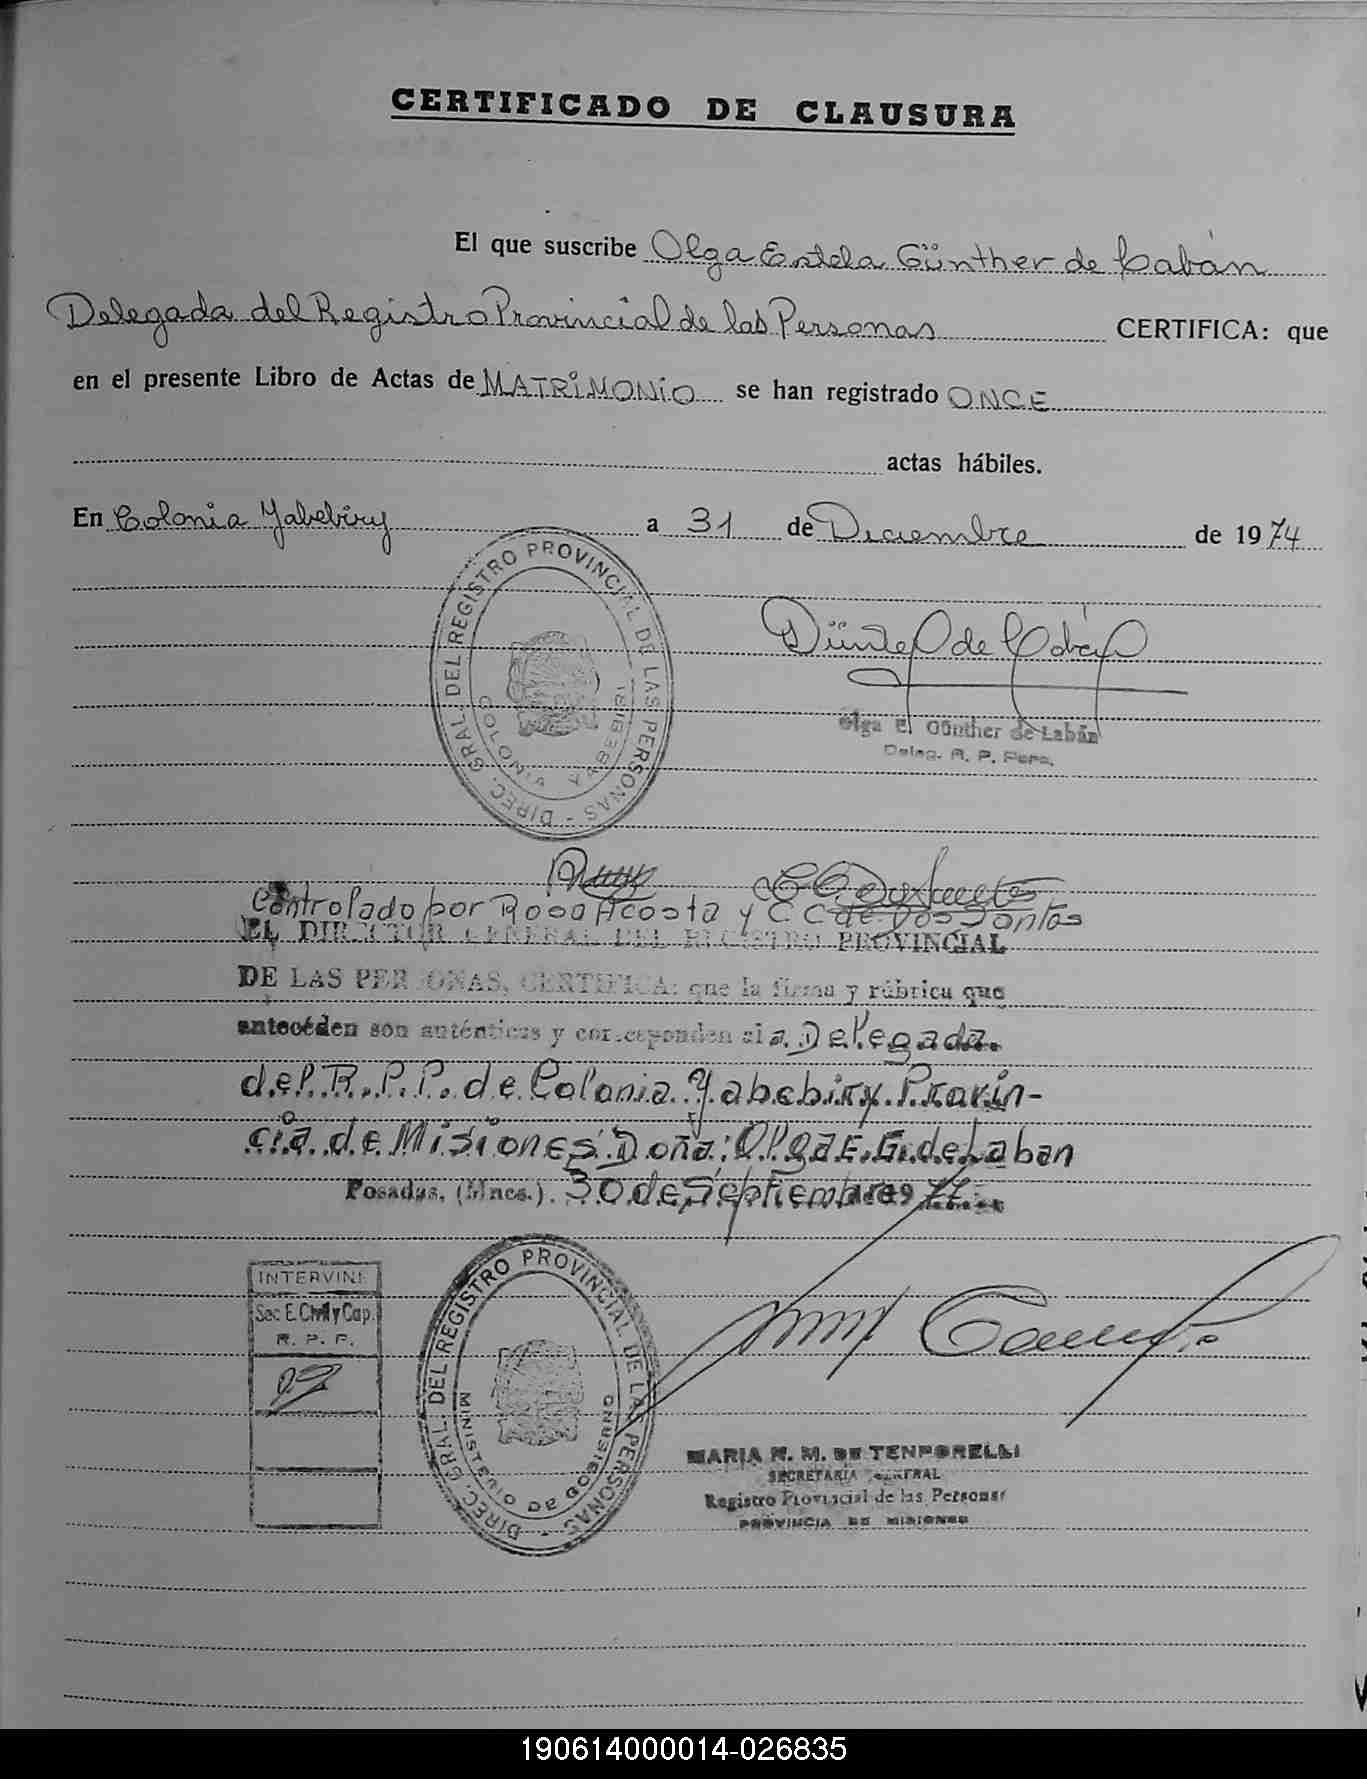 CERTIFICADO DE CLAUSURA
El que suscribe Olga Estela Günther de Labán
Delegada del Registro Provincial de las Personas CERTIFICA: que
en el presente Libro de Actas de MATRIMONIO se han registrado ONCE
actas hábiles.
En Colonia Yabebiry a 31 de Diciembre de 1974
DIREC. GRAL. DEL REGISTRO PROVINCIAL DE LAS PERSONAS -
COLONIA YABEBIRI
Günther de Labán
Olga E. Günther de Labán
Deleg. R. P. Pers.
Controlado por Rosa Acosta y C. C. de Dos Santos
EL DIRECTOR GENERAL DEL REGISTRO PROVINCIAL
DE LAS PERSONAS, CERTIFICA: que la firma y rúbrica que
antecéden son auténticas y corresponden al a Delegada
del R. P. P. de Colonia Yabebiry Provin-
cia de Misiones Doña: Olga E. G. de Laban
Posadas, (Mnes.). 30 de Septiembre 1977
INTERVINE
Sec E. Civil y Cap.
R. P. P.
DIREC. GRAL. DEL REGISTRO PROVINCIAL DE LAS PERSONAS -
MINISTERIO DE GOBIERNO
MARIA N. M. DE TENPORELLI
SECRETARIA GENERAL
Registro Provincial de las Personas
PROVINCIA DE MISIONES
190614000014-026835